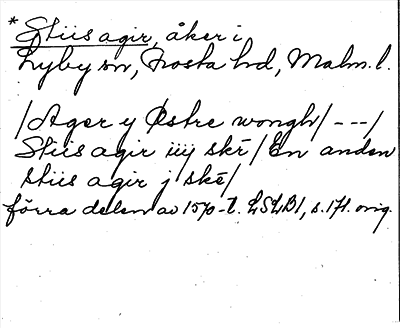 * Stiis agir, åker i
Lyby sn, Frosta hd, Malm. l.
/Ager y Østre wongh/ --- /
Stiis agir iiij skē /En anden
stiis agir j skē/
förra delen av 1570-t. LSLB1, s. 171. orig.